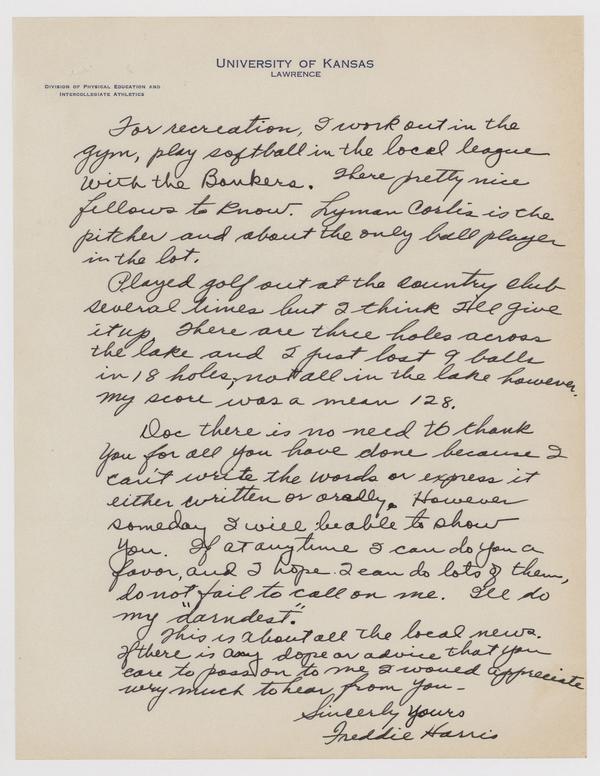 UNIVERSITY OF KANSAS
LAWRENCE
DIVISION OF PHYSICAL EDUCATION AND
INTERCOLLEGIATE ATHLETICS
For recreation, I work out in the
gym, play softball in the local league
with the Bankers. There pretty nice
fellows to know. Lyman Corlis is the
pitcher and about the only ball player
in the lot.
Played golf out at the country club
several times but I think I'll give
it up. There are three holes across
the lake and I just lost 9 balls
in 18 holes, not all in the lake however.
My score was a mean 128.
Doc there is no need to thank
you for all you have done because I
can't write the words or express it
either written or orally. However
someday I will be able to show
you. If at anytime I can do you a
favor, and I hope I can do lots of them,
do not fail to call on me. I'll do
my "darndest".
This is about all the local news.
If there is any dope or advice that you
care to pass on to me I would appreciate
very much to hear from you -
Sincerely Yours
Freddie Harris